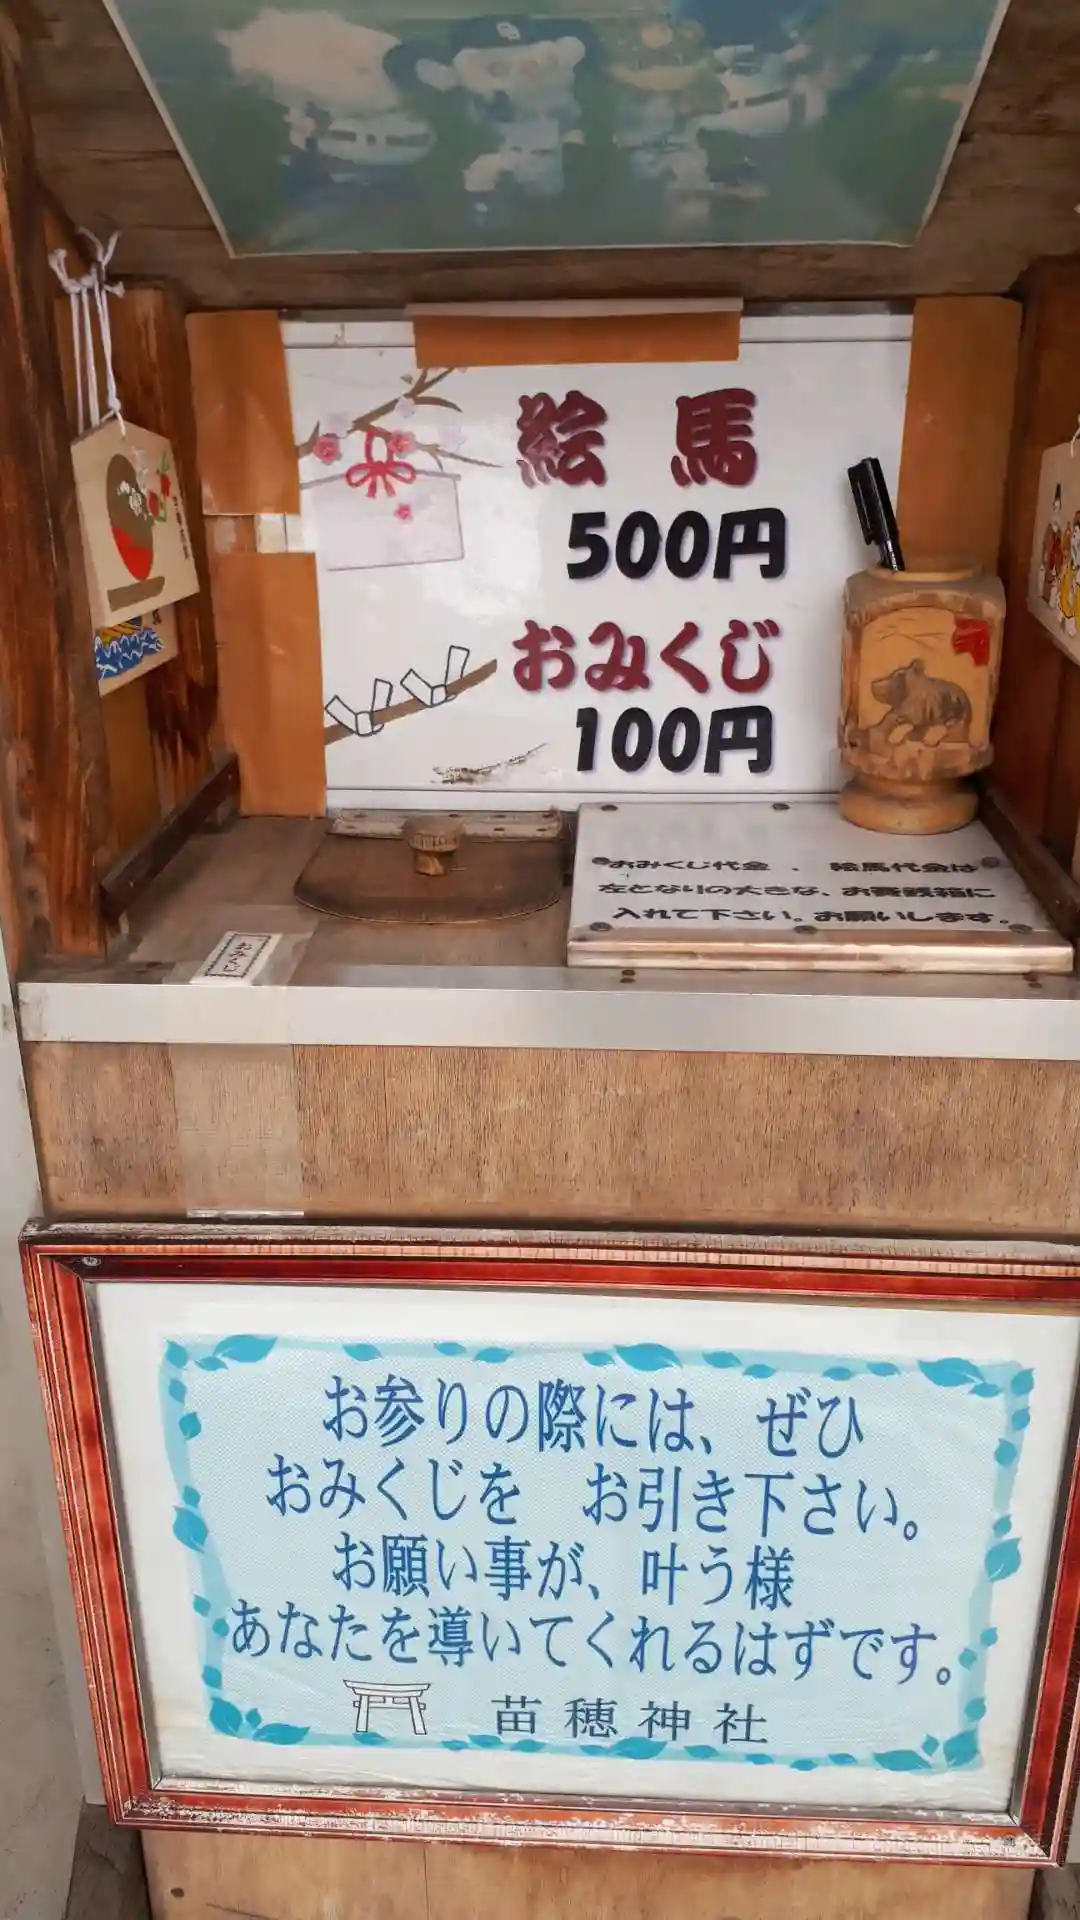 絵馬
500円
おみくじ
100円
おみくじ代金 、 絵馬代金は
左となりの大きな、お賽銭箱に
入れて下さい。お願いします。
おみくじ
お参りの際には、ぜひ
おみくじを お引き下さい。
お願い事が、叶う様
あなたを導いてくれるはずです。
苗穂神社